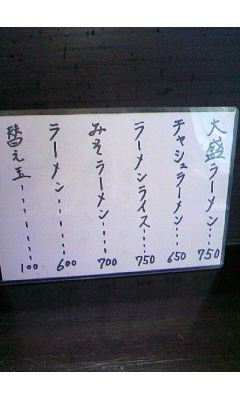 大盛ラーメン・・・750
チャシュラーメン・・・650
ラーメンライス・・・750
みそラーメン・・・・700
ラーメン・・・・・・600
替え玉・・・・・・・100